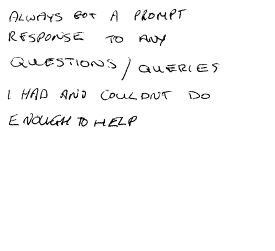 ALWAYS GOT A PROMPT
RESPONSE TO ANY
QUESTIONS/QUERIES
I HAD AND COULDNT DO
ENOUGH TO HELP